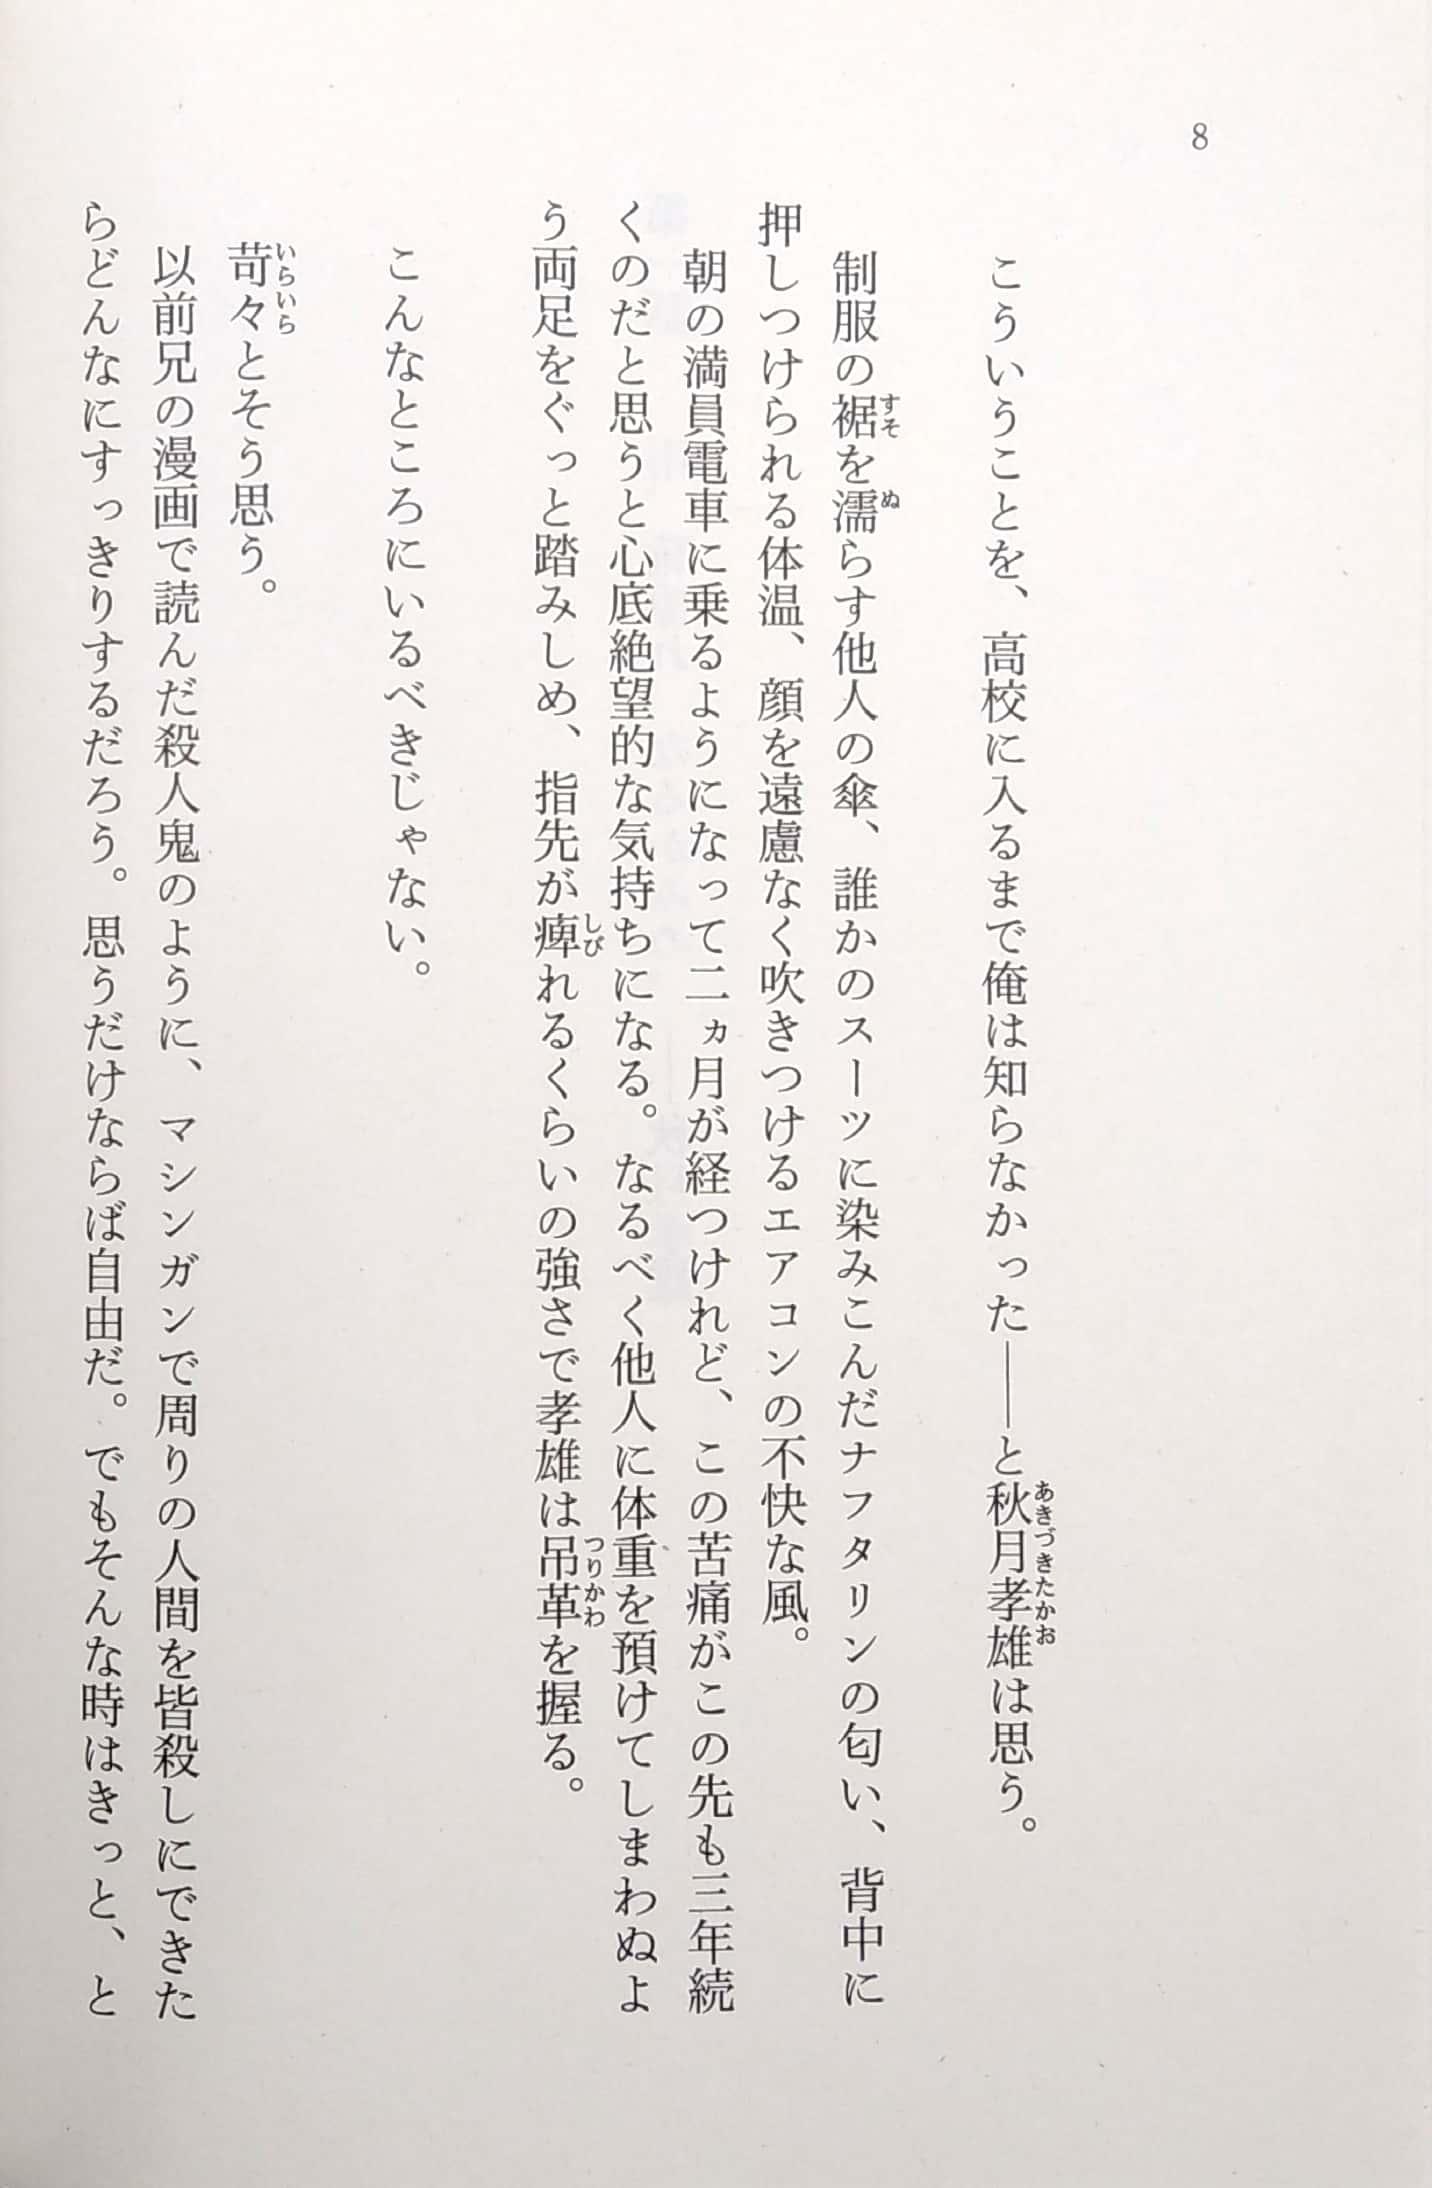 8
こういうことを、高校に入るまで俺は知らなかった――と秋月孝雄は思う。
制服の裾を濡らす他人の傘、誰かのスーツに染みこんだナフタリンの匂い、背中に
押しつけられる体温、顔を遠慮なく吹きつけるエアコンの不快な風。
朝の満員電車に乗るようになって二ヵ月が経つけれど、この苦痛がこの先も三年続
くのだと思うと心底絶望的な気持ちになる。なるべく他人に体重を預けてしまわぬよ
う両足をぐっと踏みしめ、指先が痺れるくらいの強さで孝雄は吊革を握る。
こんなところにいるべきじゃない。
苛々とそう思う。
以前兄の漫画で読んだ殺人鬼のように、マシンガンで周りの人間を皆殺しにできた
らどんなにすっきりするだろう。思うだけならば自由だ。でもそんな時はきっと、と